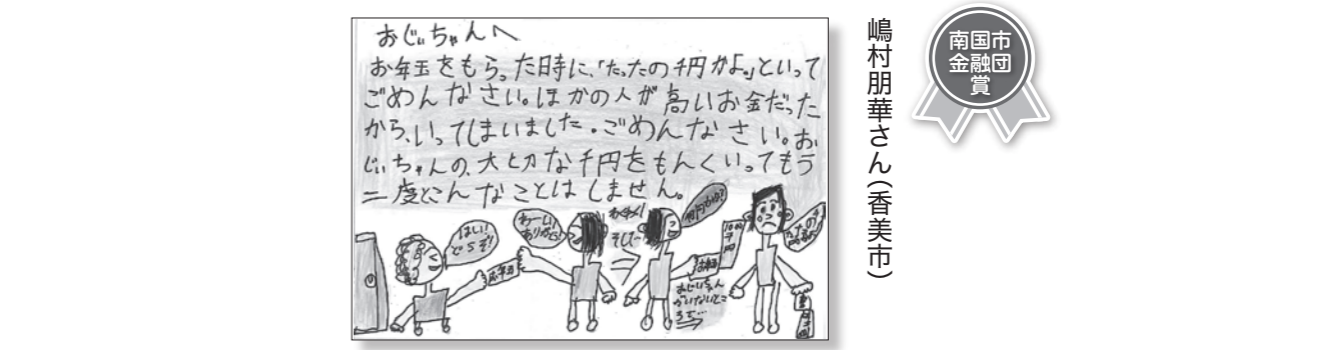 おじぃちゃんへ
お年玉をもらった時に、「たったの千円かよ。」といって
ごめんなさい。ほかの人が高いお金だった
から、いってしまいました。ごめんなさい。お
じぃちゃんの、大切な千円をもんくいってもう
二度とこんなことはしません。
はい!
どうぞ!
お年玉
わーい!
ありがとう!
そして…
何円かな?
お年玉
おじいちゃん
がいないとこ
ろで…
千円
たったの千
嶋村朋華さん(香美市)
南国市
金融団
賞